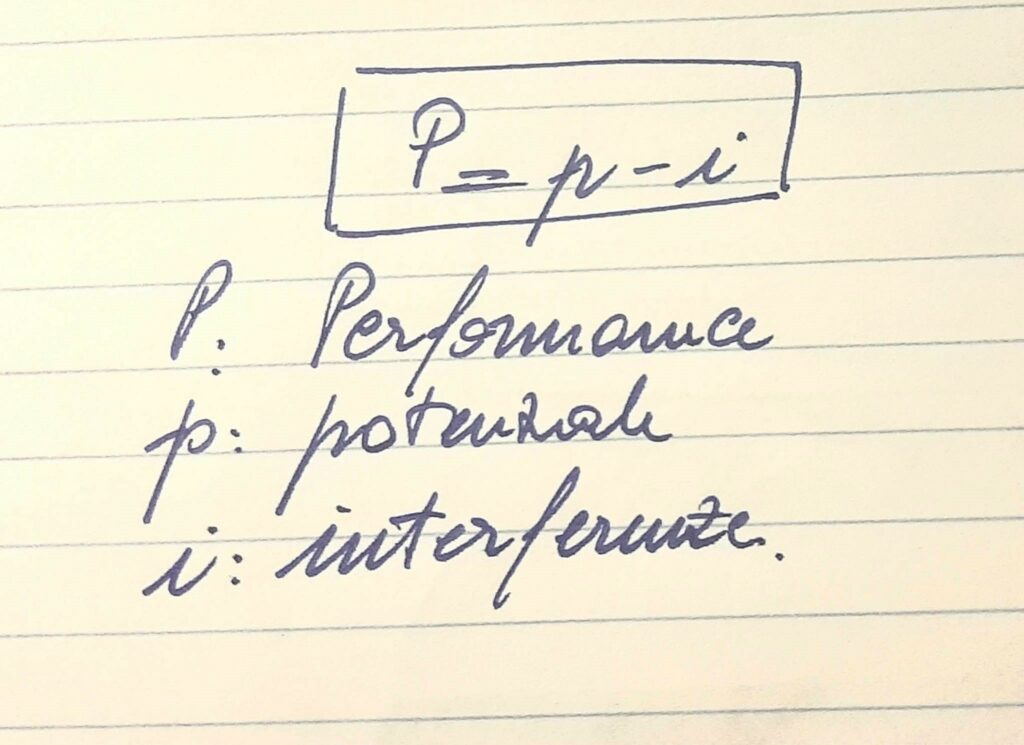 P = p - i
P: Performance
p: potenziale
i: interferenze.